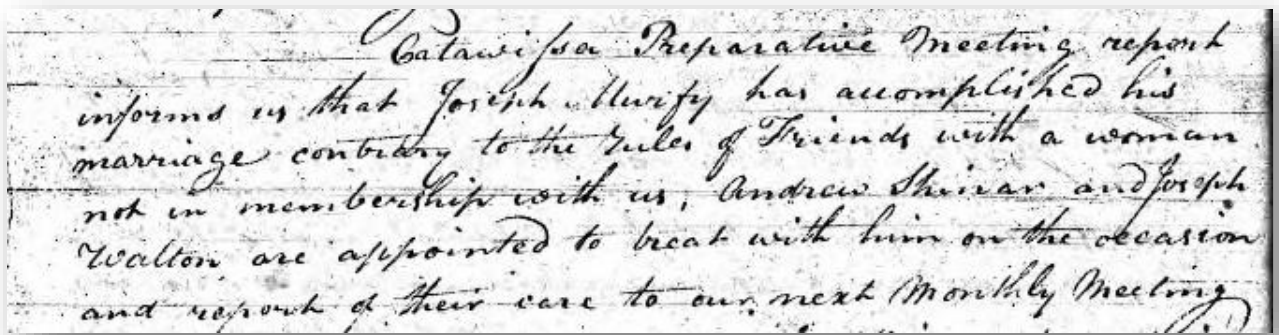 Catawissa Preparative Meeting report
informs us that Joseph Murfy has accomplished his
marriage contrary to the rules of Friends with a woman
not in membership with us, Andrew Shinar and Joseph
Walton are appointed to treat with him on the occasion
and report of their care to our next Monthly Meeting